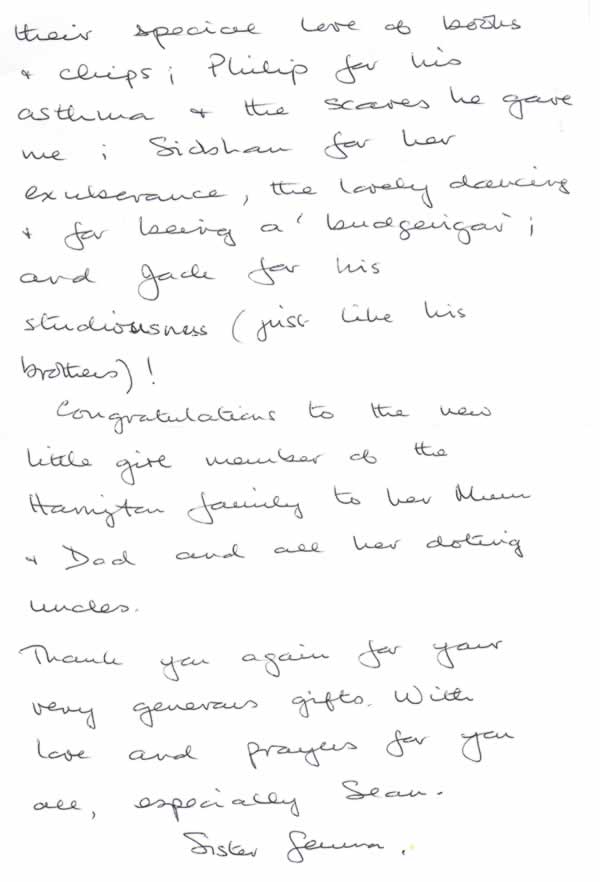 their special love of books
+ chips; Philip for his
asthma + the scares he gave
me; Siobhan for her
exuberance, the lovely dancing
+ for being a 'budgerigar';
and Jack for his
studiousness (just like his
brothers)!
Congratulations to the new
little girl member of the
Harrington family to her Mum
+ Dad and all her doting
uncles.
Thank you again for your
very generous gifts. With
love and prayers for you
all, especially Sean.
Sister Gemma.